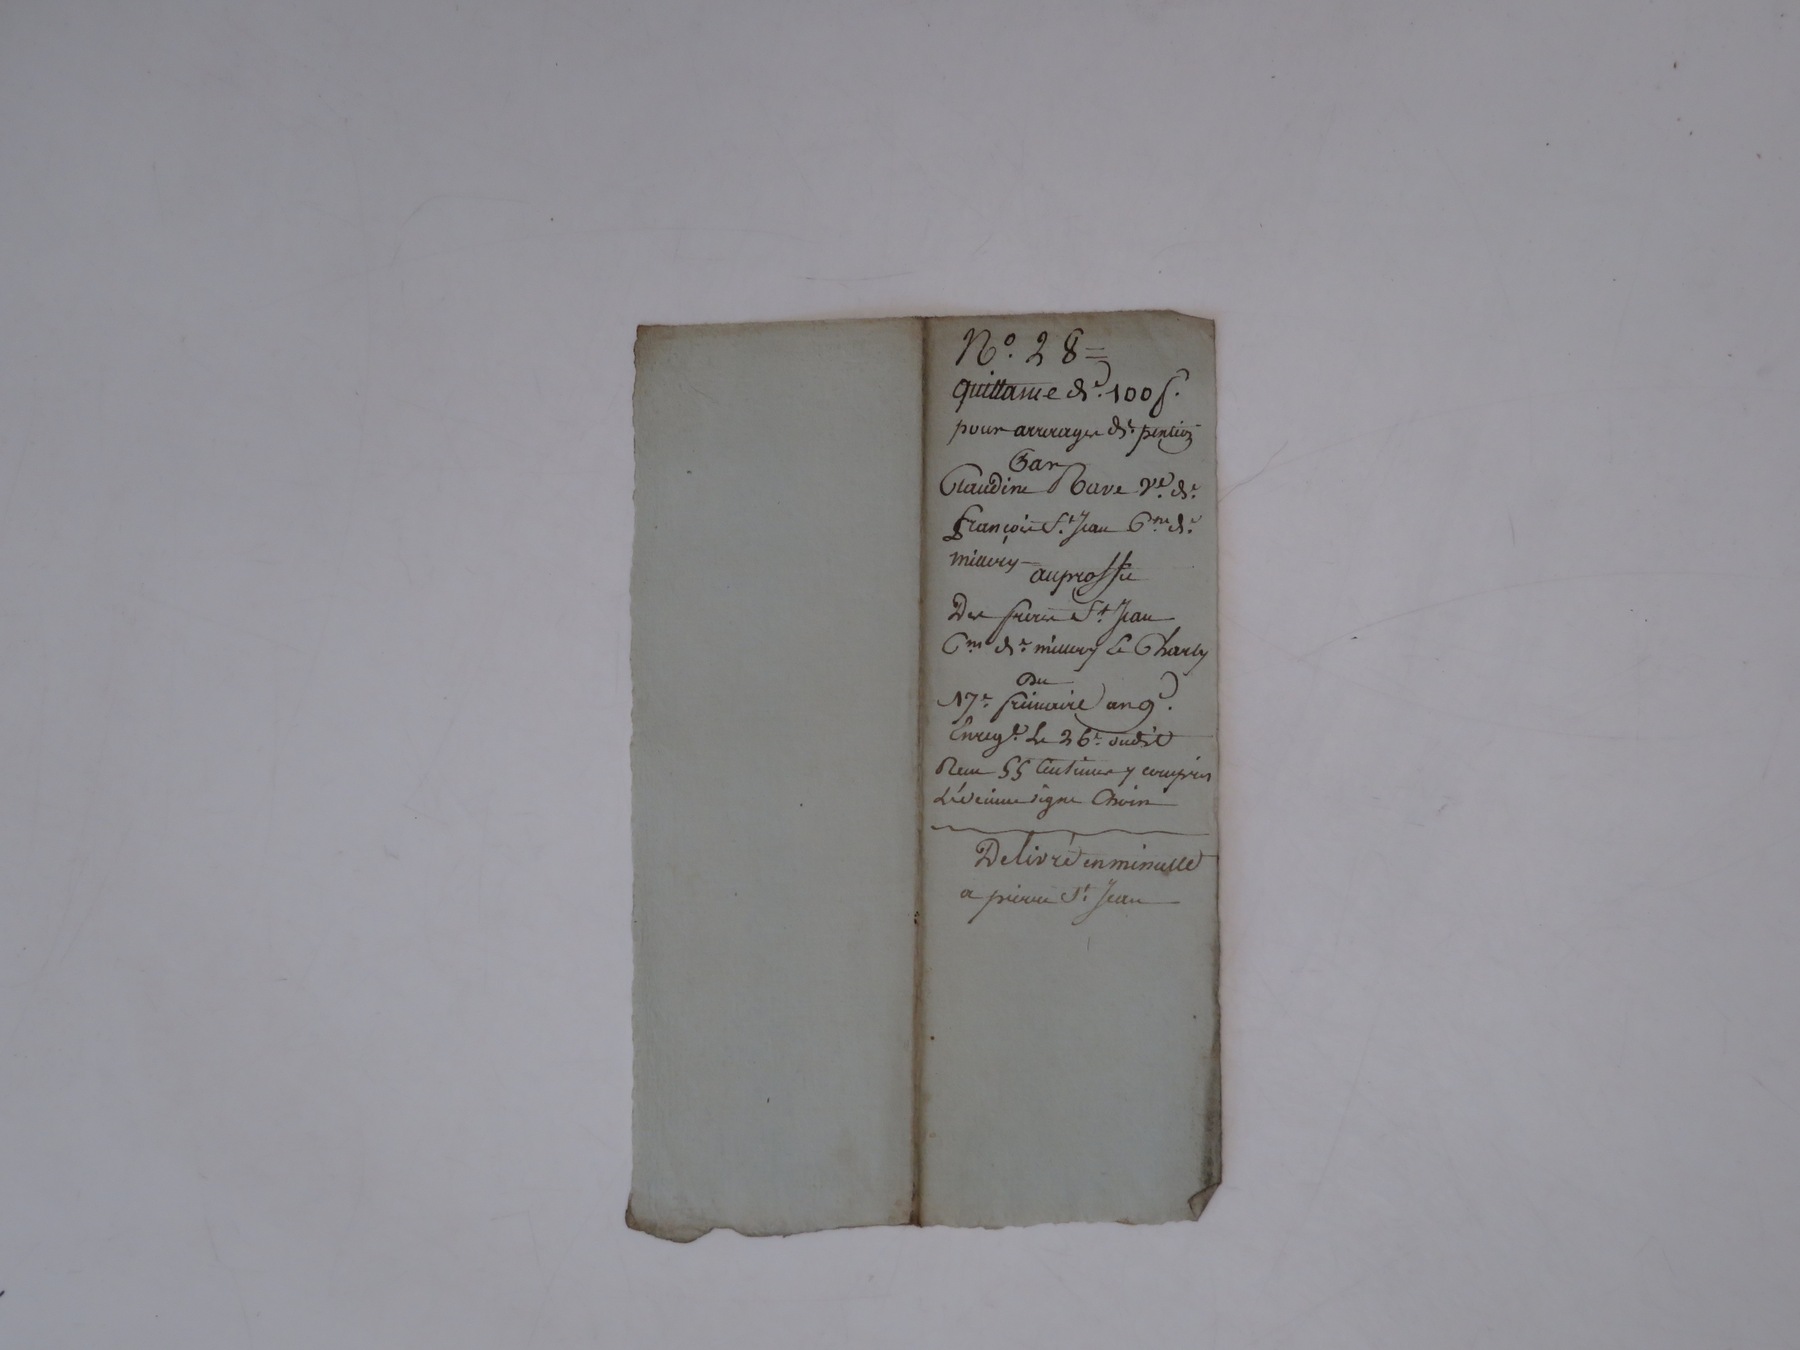 No. 28=
quittance de. 100 f.
pour arrerages de pension
Par
Claudine Rave Ve. de
françois St. Jean Cne. de
millery
au proffit
Des freres St Jean
Cne de millery Le Charly
Du
17e frimaire an 9.
Enregé. Le 26e. susdit
Recu 55 Centimes y compris
Lédeime signe Choin
Delivré en minutte
a pierre St. Jean